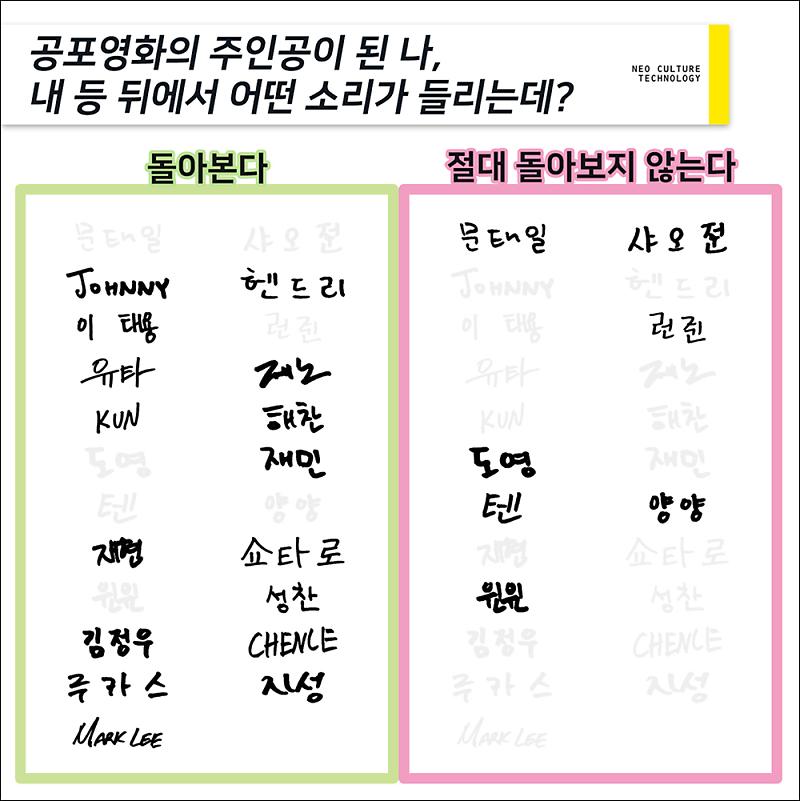 공포영화의 주인공이 된 나,
내 등 뒤에서 어떤 소리가 들리는데?
NEO CULTURE
TECHNOLOGY
돌아본다
문태일 샤오쥔
JOHNNY 헨드리
이 태용 런쥔
유타 제노
KUN 해찬
도영 재민
텐 양양
재현 쇼타로
윈윈 성찬
김정우 CHENLE
루카스 지성
MARK LEE
절대 돌아보지 않는다
문태일 샤오쥔
JOHNNY 헨드리
이 태용 런쥔
유타 제노
KUN 해찬
도영 재민
텐 양양
재현 쇼타로
윈윈 성찬
김정우 CHENLE
루카스 지성
MARK LEE